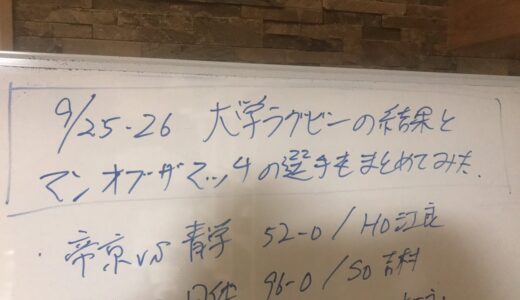 9/25-26 大学ラグビーの結果と
マンオブザマッチの選手もまとめてみた.
・帝京VS青学 52-0/HO江良
96-0/SO吉科